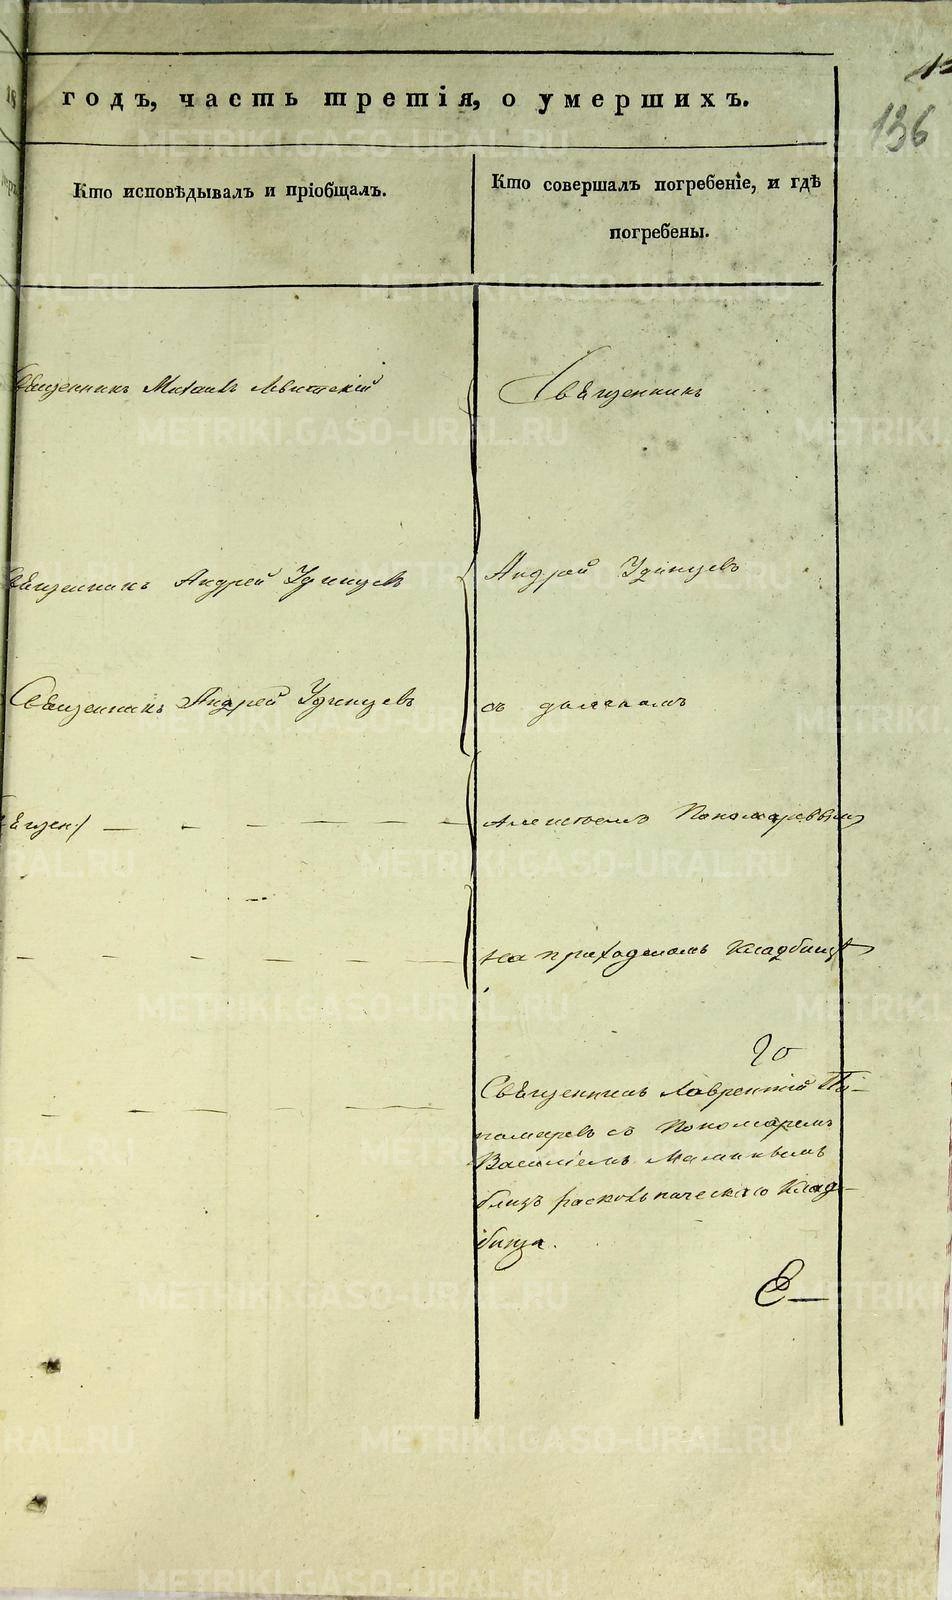 годъ, часть третія, о умершихъ.
136
Кто исповѣдывалъ и пріобщалъ.
Кто совершалъ погребеніе, и гдѣ
погребены.
Священникъ Михаилъ Левитскій
Священникъ Андрей Удинцевъ
Священникъ Андрей Удинцевъ
Священникъ
Андрей Удинцевъ
съ дьячкомъ
Алексѣемъ Пономаревымъ
на приходскомъ Кладбищѣ
Священникъ Лаврентій
съ Пономаремъ
Василіемъ
близъ раскольническаго Клад-
бища.
METRIKI.GASO-URAL.RU